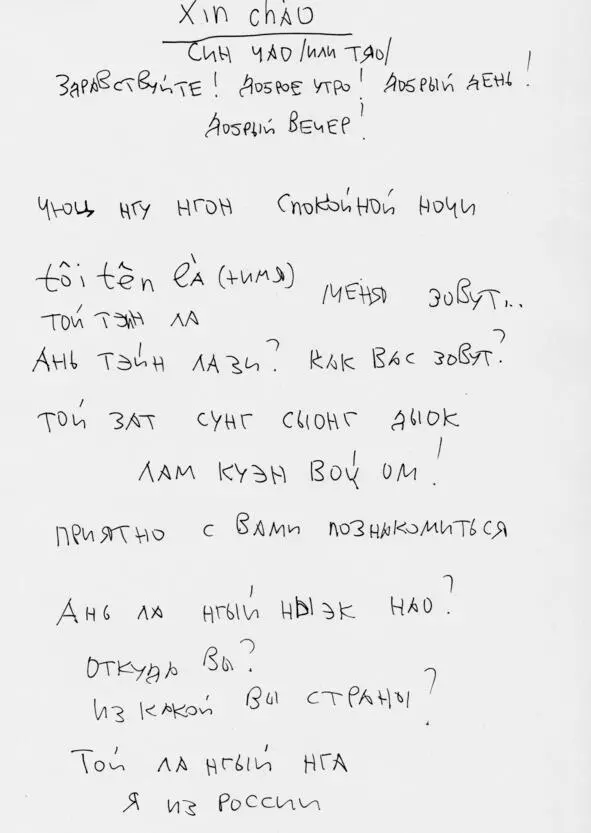 Xin chào
СИН ЧАО /ИЛИ ТЯО/
ЗДРАВСТВУЙТЕ! ДОБРОЕ УТРО! ДОБРЫЙ ДЕНЬ!
ДОБРЫЙ ВЕЧЕР!
ЧЮЦ НГУ НГОН СПОКОЙНОЙ НОЧИ
tôi tên là (+ИМЯ) МЕНЯ ЗОВУТ...
ТОЙ ТЭЙН ЛА
АНЬ ТЭЙН ЛА ЗИ? КАК ВАС ЗОВУТ?
ТОЙ ЗАТ СУНГ СЫОНГ ДЫОК
ЛАМ КУЭН ВОЙ ОМ!
ПРИЯТНО С ВАМИ ПОЗНАКОМИТЬСЯ
АНЬ ЛА НГЫЙ НЫЭК НАО?
ОТКУДА ВЫ?
ИЗ КАКОЙ ВЫ СТРАНЫ?
ТОЙ ЛА НГЫЙ НГА
Я ИЗ РОССИИ